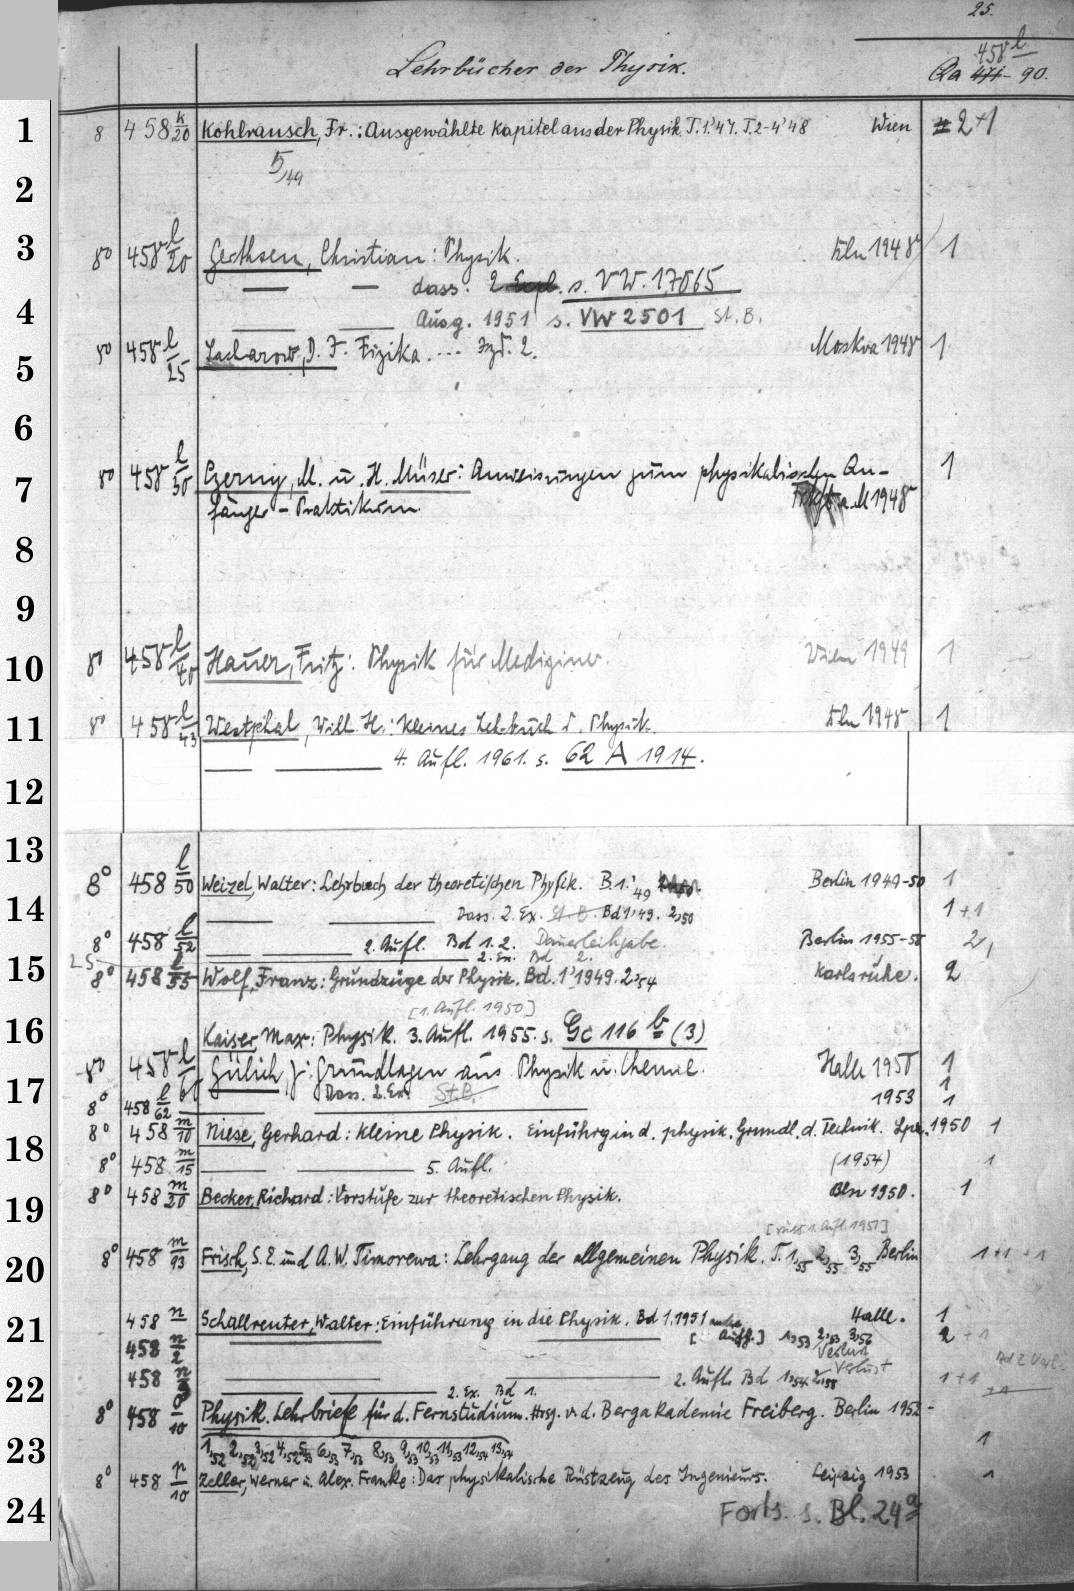 25.
Lehrbücher der Physik.
458 l
Qa 471 - 90.
1 8 458 k/20 Kohlrausch, Fr.: Ausgewählte Kapitel aus der Physik. T. 1.'47. T. 2-4'48 Wien 2+1
5/49
2
3 8° 458 l/20 Gerthsen, Christian: Physik. Bln 1948 1
— — dass. 2 Expl. s. VW. 17065
4 Ausg. 1951 s. VW 2501 St. B.
5 8° 458 l/25 D. I. Fizika .... Izd. 2. Moskva 1948 1
6
7 8° 458 l/30 Czerny, M. u. H. Müser: Anweisungen zum physikalischen An-
fänger-Praktikum. Frkft a. M 1948 1
8
9
10 8° 458 l/40 Hauer, Fritz: Physik für Mediziner. Wien 1949 1
11 8° 458 l/43 Westphal, Wilh. H.: Kleines Lehrbuch d. Physik. Bln 1948 1
— — 4. Aufl. 1961. s. 62 A 1914.
12
13
8° 458 l/50 Weizel, Walter: Lehrbuch der theoretischen Physik. B. 1.'49 Berlin 1949-50 1
14 — — Dass. 2. Ex. St. B. Bd 1,49. 2,50 1+1
8° 458 l/52 — — 2. Aufl. Bd 1. 2. Dauerleihgabe. Berlin 1955-58 2,
— — 2. Ex. Bd 2.
15 8° 458 l/55 Wolf, Franz: Grundzüge der Physik. Bd. 1,1949. 2,54 Karlsruhe. 2
[1. Aufl. 1950]
16 Kaiser, Max: Physik. 3. Aufl. 1955. s. Gc 116 b (3)
8° 458 l/60 Gülich, J: Grundlagen aus Physik u. Chemie. Halle 1950 1
17 Dass. 2. Ex. St. B. 1
8° 458 l/62 — — 1953 1
8° 458 m/10 Niese, Gerhard: Kleine Physik. Einführg in d. physik. Grundl. d. Technik. Lpz. 1950 1
18 8° 458 m/15 — — 5. Aufl. (1954) 1
8° 458 m/20 Becker, Richard: Vorstufe zur theoretischen Physik. Bln 1950. 1
19
[1. Aufl. 1951]
20 8° 458 m/93 Frisch, S. E. und A. W. Timorewa: Lehrgang der allgemeinen Physik. T. 1,55 2,55 3,55 Berlin 1+1+1
458 n Schallreuter, Walter: Einführung in die Physik. Bd 1. 1951 Halle. 1
21 458 n/2 — — [ Aufl.] 1,53 2,53 3,56 2+1
Verlust
458 n/3 — — 2. Aufl. Bd 1,54. 2,58 Verlust 1+1
22 — — 2. Ex. Bd 1. +1
8° 458 o/10 Physik. Lehrbriefe für d. Fernstudium. Hrsg. v. d. Bergakademie Freiberg. Berlin 1952-
23 1,52 2,52 3,52 4,52 5,53 6,53 7,53 8,53 9,53 10,53 11,53 12,54 13,54 1
8° 458 p/10 Zeller, Werner u. Alex. Franke: Das physikalische Rüstzeug des Ingenieurs. Leipzig 1953 1
24 Forts. s. Bl. 24a